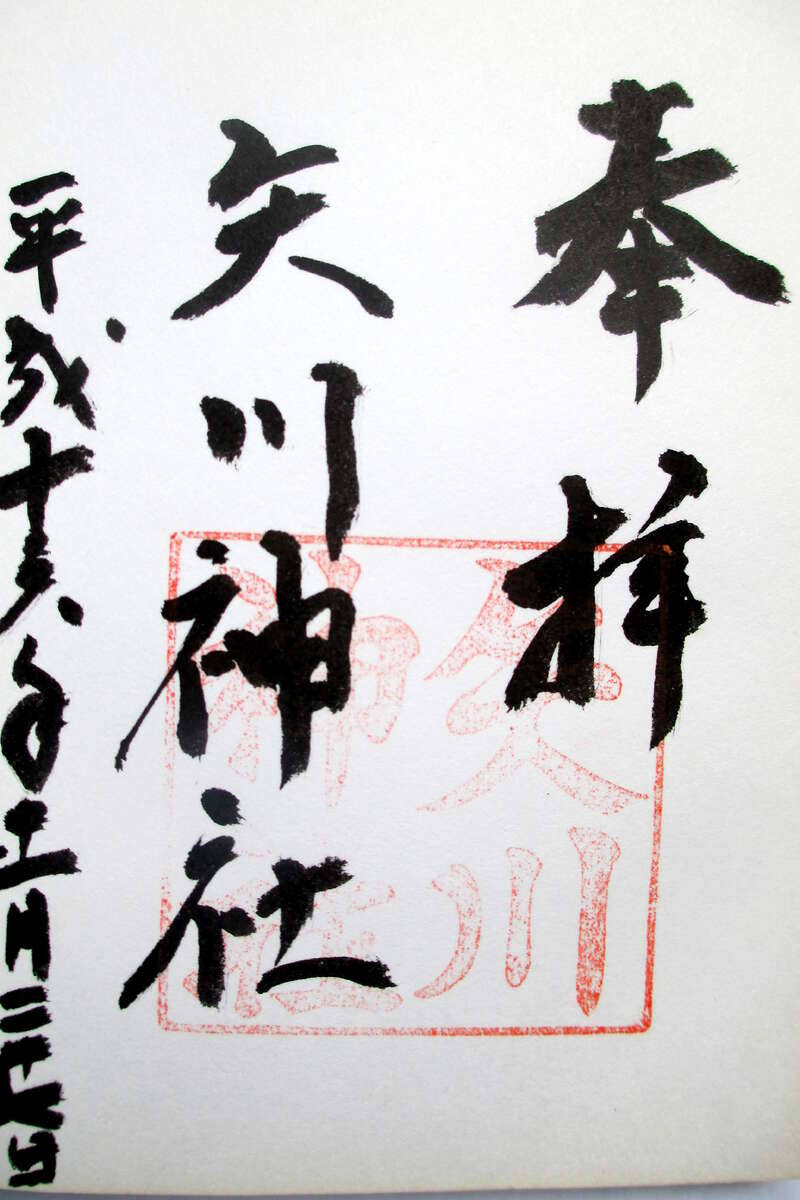 奉拝
矢川神社
平成十六年五月二十七日
矢川
神社